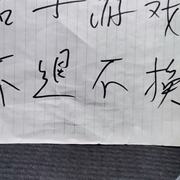 子游戏
不退不换